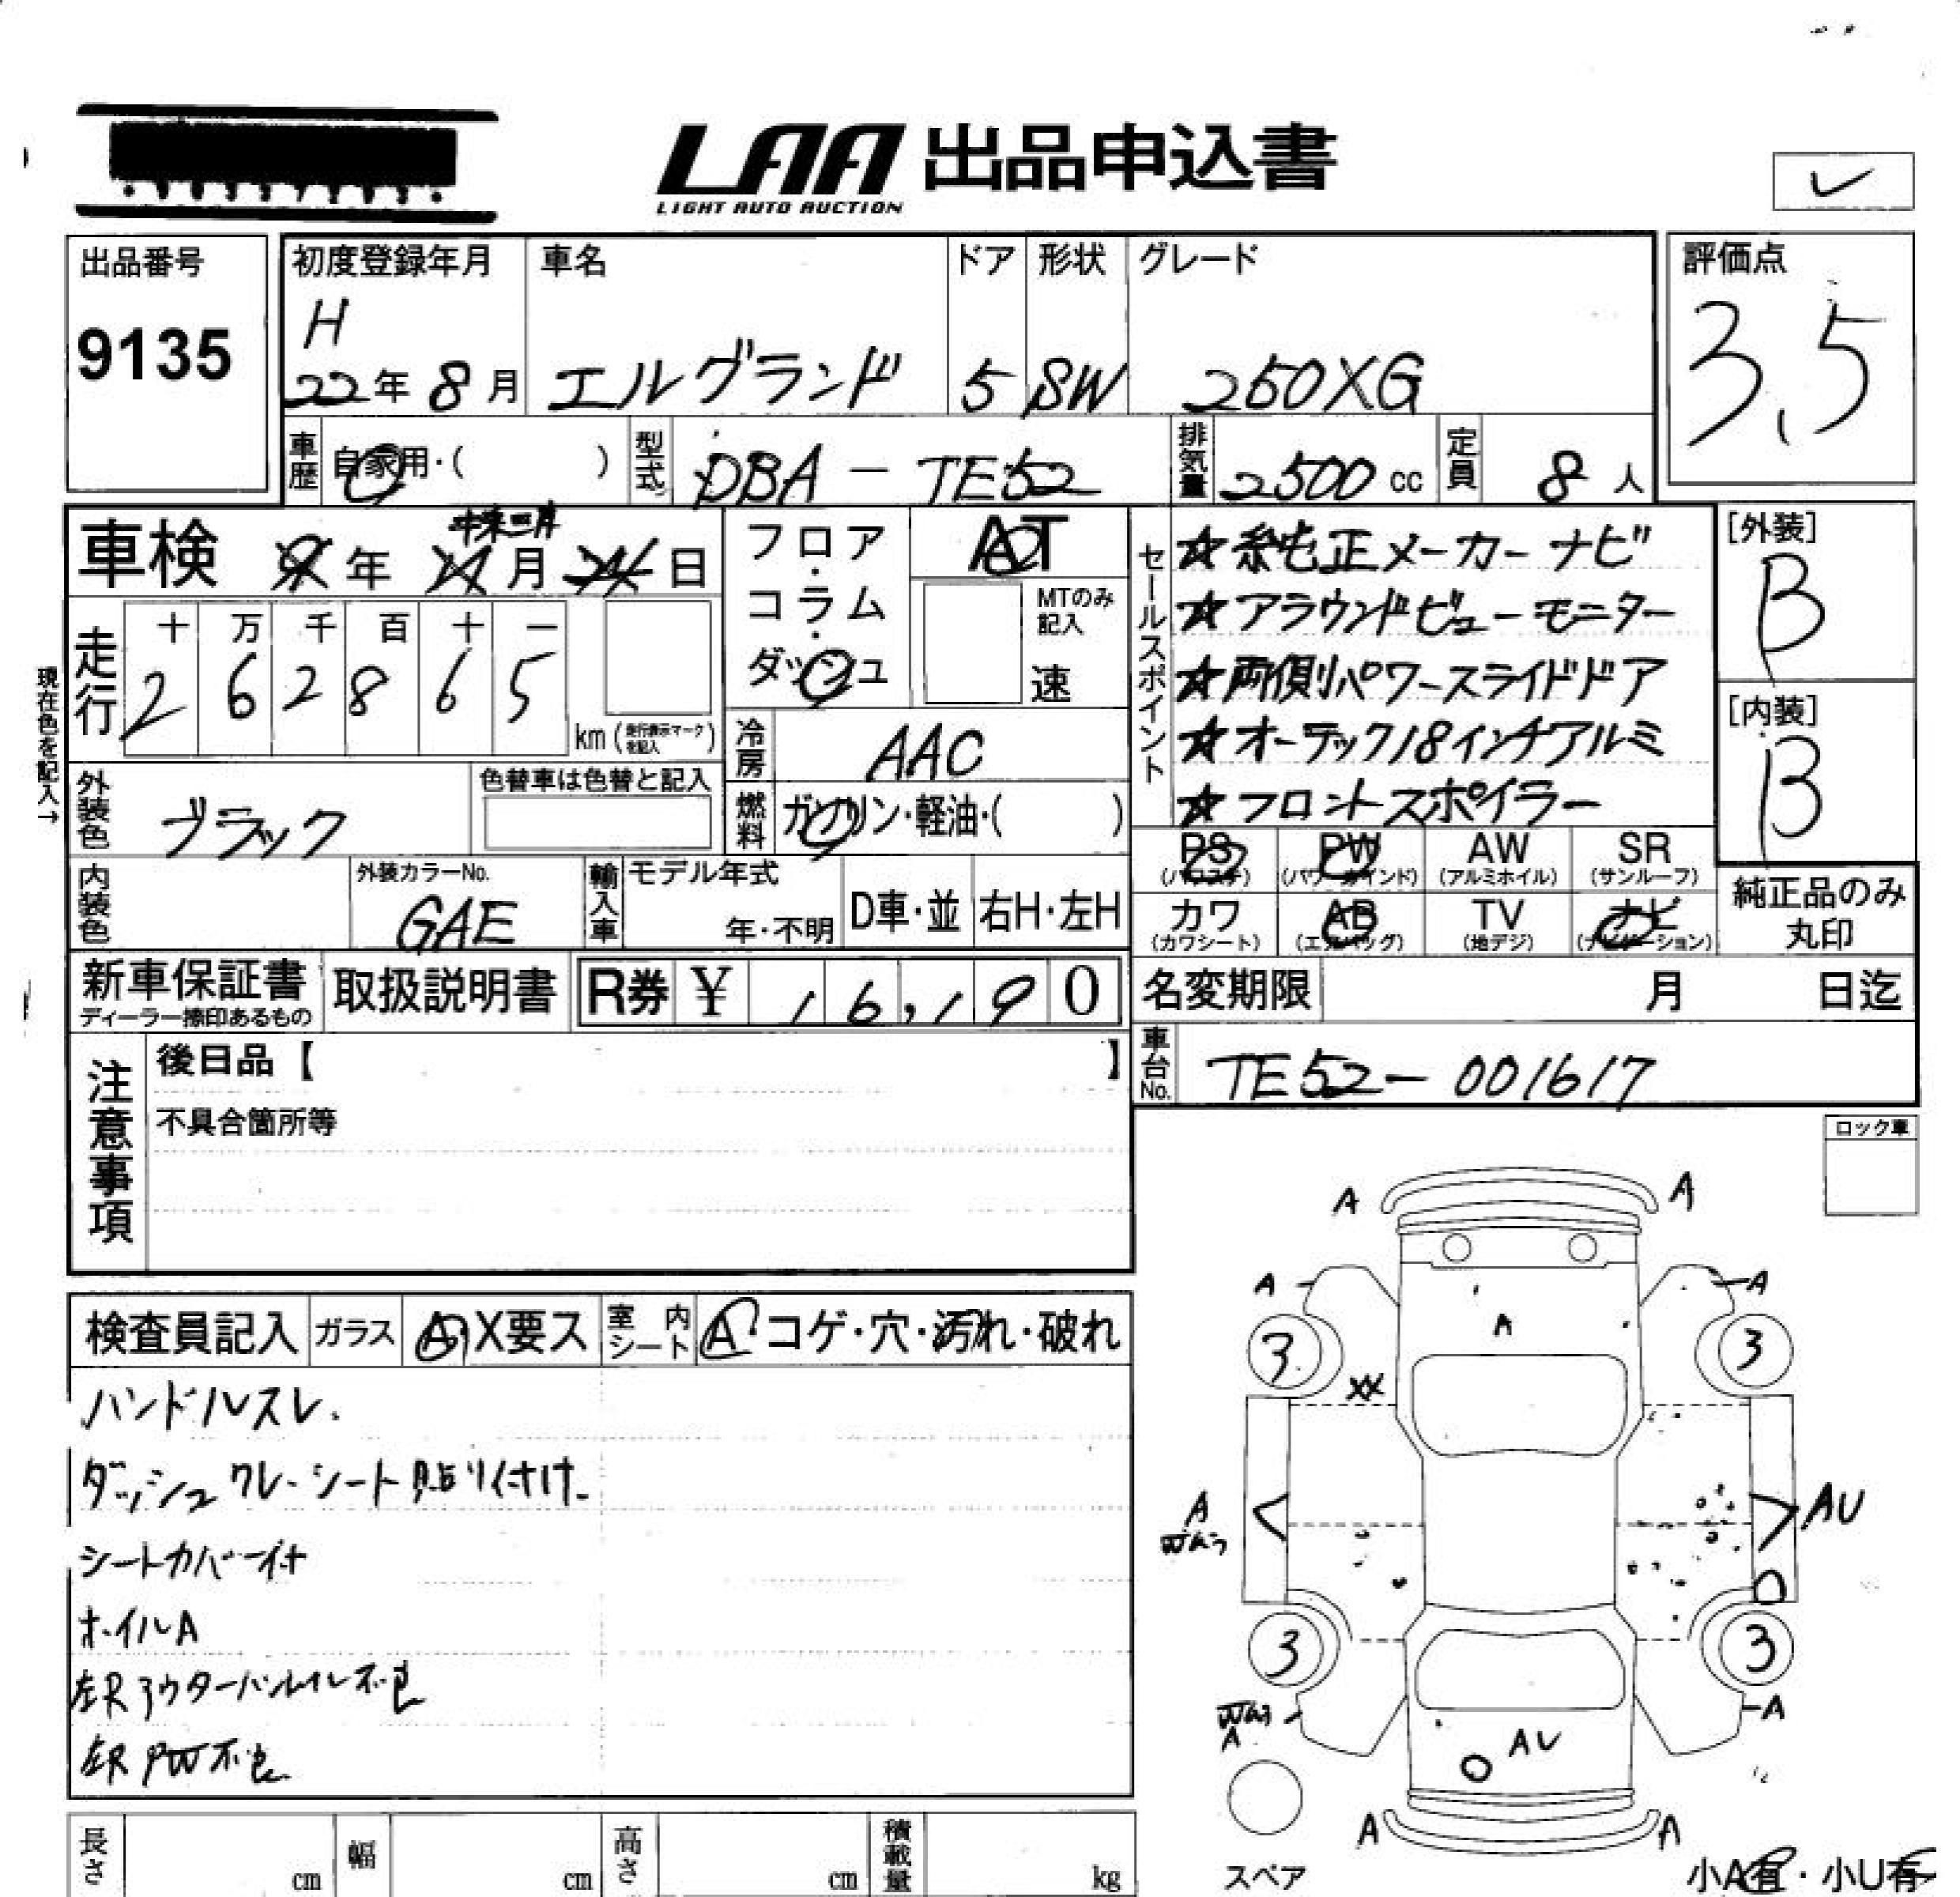 LAA 出品申込書
LIGHT AUTO AUCTION
出品番号
9135
初度登録年月
H
22年 8月
車名
エルグランド
ドア
5
形状
SW
グレード
250XG
評価点
3.5
車歴 自家用・( )
型式 DBA-TE52
排気量 2500 cc
定員 8人
車検 年 月 日
フロア・コラム・ダッシュ
AT
MTのみ記入
速
セールスポイント
☆純正メーカーナビ
☆アラウンドビューモニター
☆両側パワースライドドア
☆オーテック18インチアルミ
☆フロントスポイラー
[外装]
B
[内装]
B
現在色を記入→
走行
十 万 千 百 十 一
2 6 2 8 6 5
km(走行表示マークを記入)
冷房 AAC
外装色 ブラック
色替車は色替と記入
燃料 ガソリン・軽油・( )
PS (パワステ)
PW (パワーウインド)
AW (アルミホイル)
SR (サンルーフ)
カワ (カワシート)
AB (エアバッグ)
TV (地デジ)
ナビ (ナビゲーション)
純正品のみ丸印
内装色
外装カラーNo.
GAE
輸入車
モデル年式
年・不明
D車・並
右H・左H
新車保証書
ディーラー捺印あるもの
取扱説明書
R券 ¥ 16,190
名変期限 月 日迄
車台No. TE52-001617
注意事項
後日品【 】
不具合箇所等
ロック車
検査員記入
ガラス A・X要ス
室内シート A・コゲ・穴・汚れ・破れ
ハンドルスレ.
ダッシュクレーシート貼り付け
シートカバー付
ホイルA
左Rアウターハンドル不良
左R PW不良
A A
A A
A
3 3
XX
A AU
3 3
A
A
AU
A A
スペア
小A有・小U有
長さ cm
幅 cm
高さ cm
積載量 kg